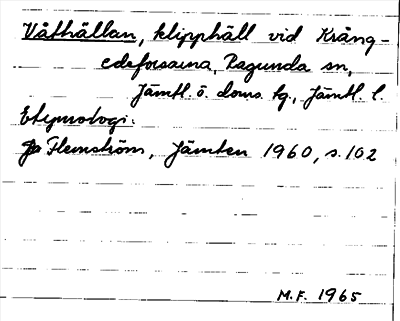 Våthällan, klipphäll vid Krång-
edeforsarna, Ragunda sn,
Jämtl. ö. doms. tg., Jämtl. l.
Etymologi:
Flemström, Jämten 1960, s. 102
M.F. 1965